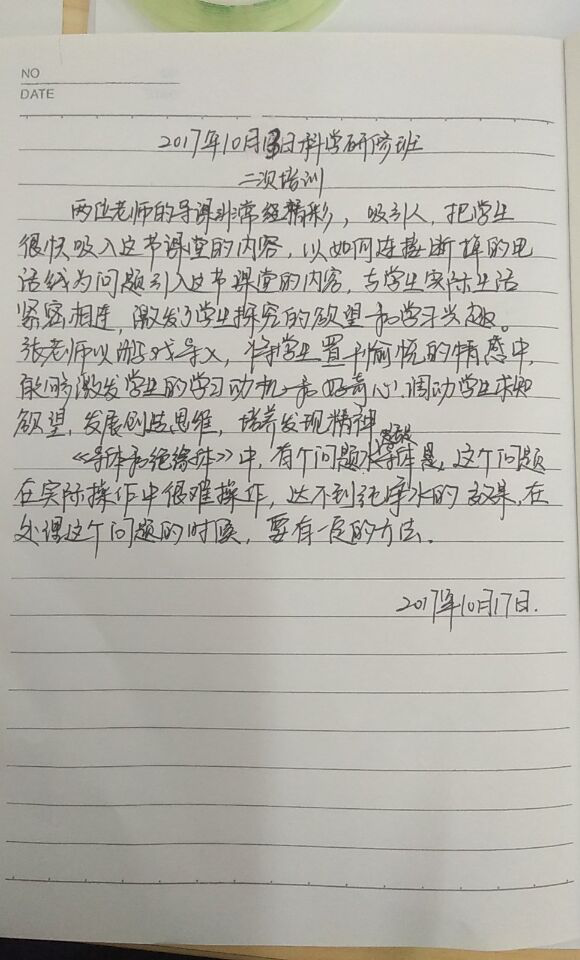 NO
DATE
2017年10月13日科学研修班
二次培训
两位老师的导课非常经精彩，吸引人，把学生
很快吸入这节课堂的内容，以如何连接断掉的电
话线为问题引入这节课堂的内容，与学生实际生活
紧密相连，激发了学生探究的欲望和学习兴趣。
张老师以游戏导入，将学生置于愉悦的情感中，
能够激发学生的学习动机和好奇心，调动学生求知
欲望，发展创造思维，培养发现精神
《导体和绝缘体》中，有个问题水导体是，这个问题
在实际操作中很难操作，达不到纯净水的效果，在
处理这个问题的时候，要有一定的方法。
2017年10月17日.